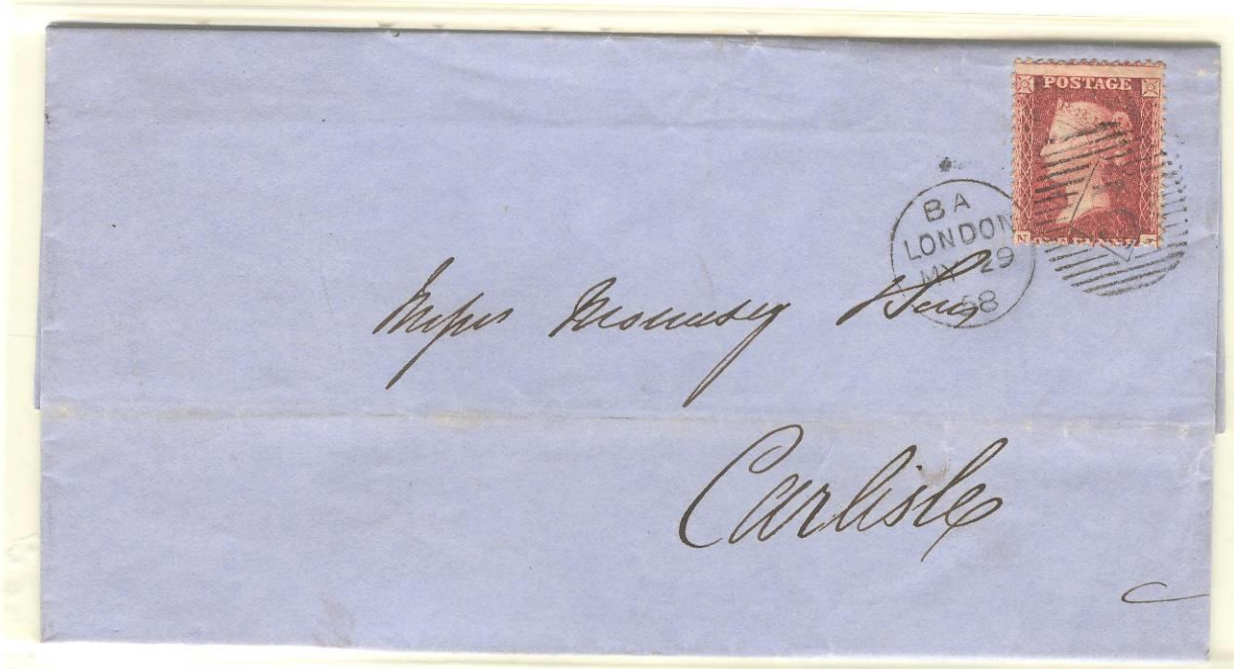 POSTAGE
BA
LONDON
MY 29
58
N
Messrs Mounsey & Sons
Carlisle